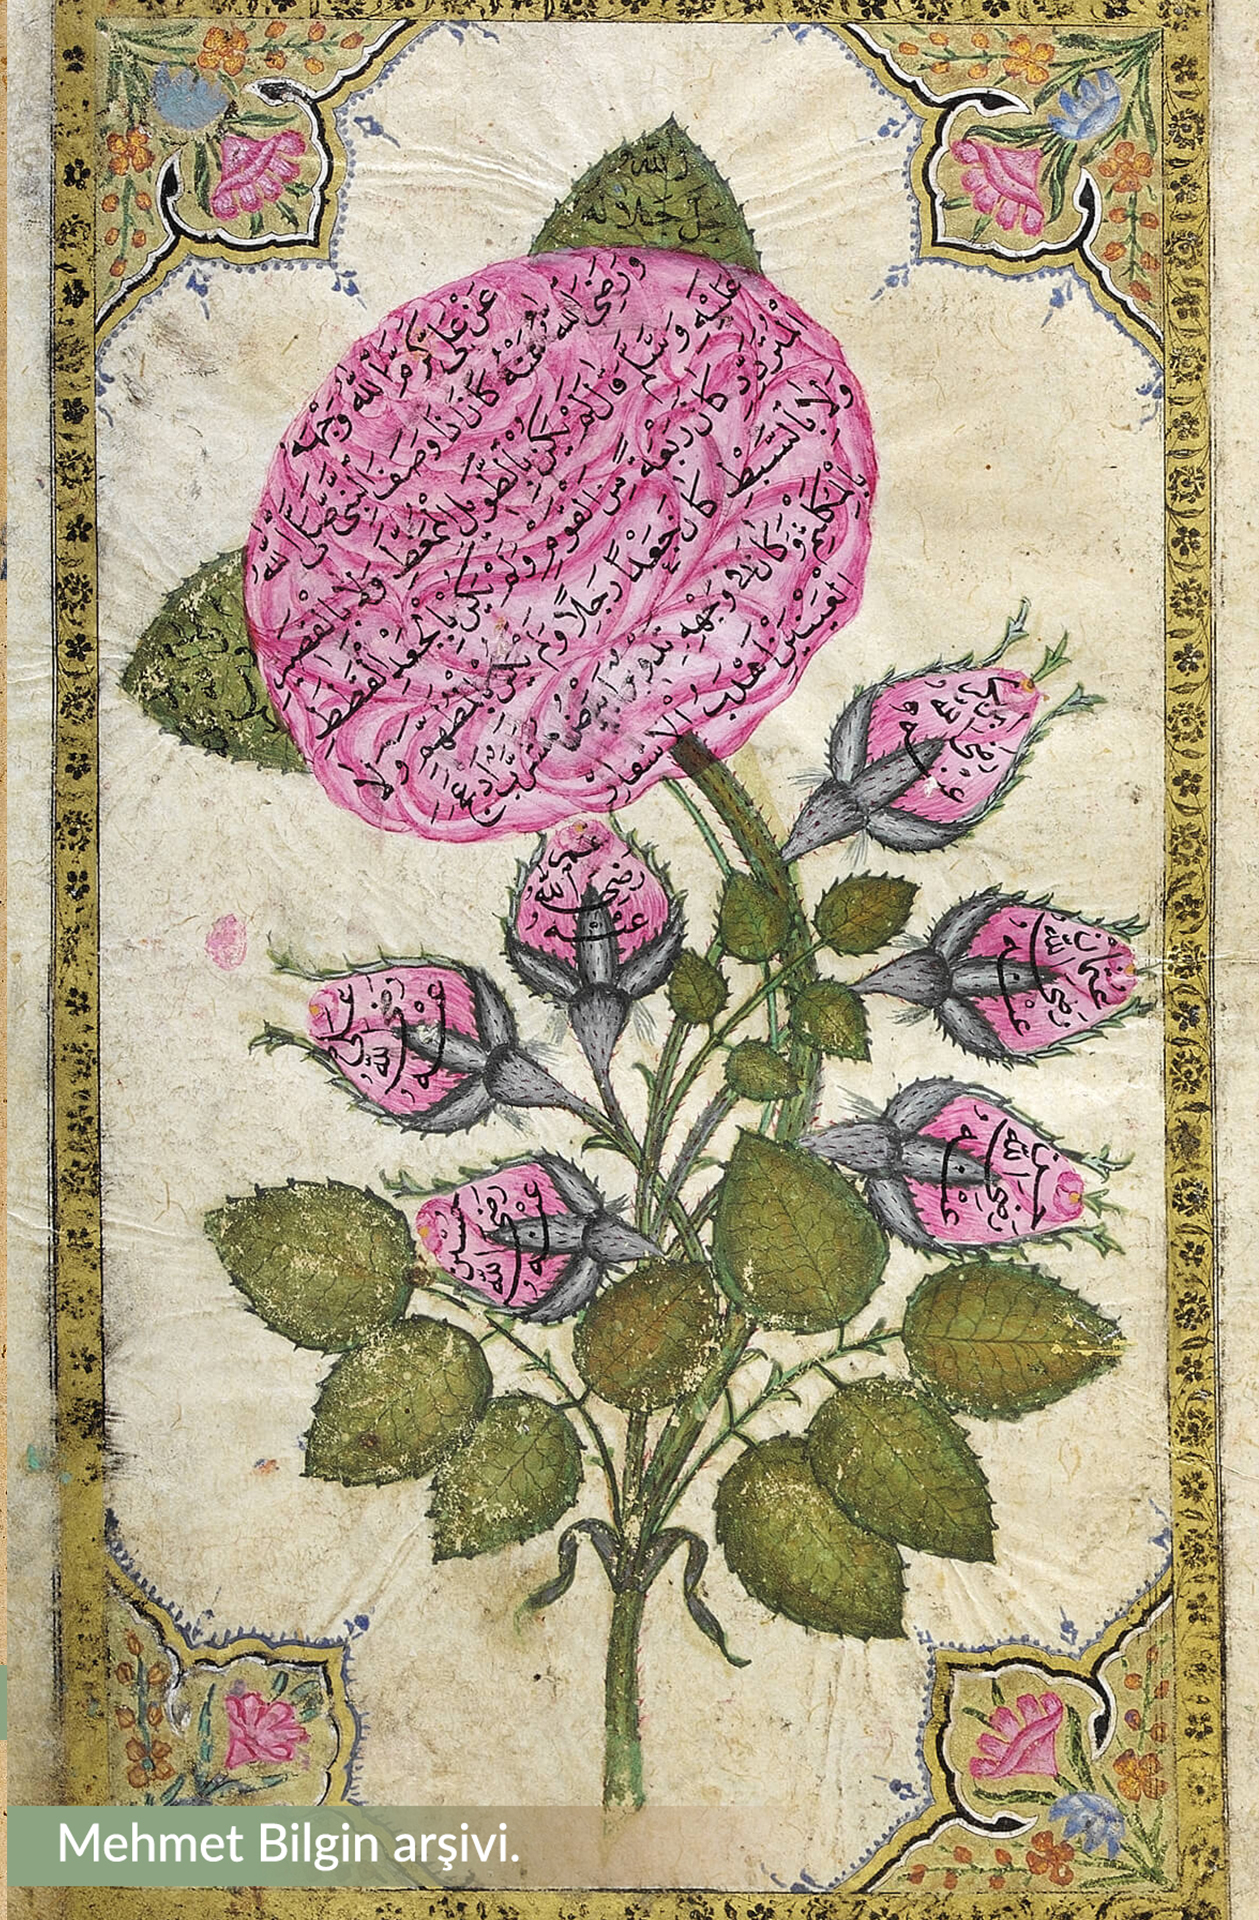 الله
جل جلاله
عن علي كرم الله وجهه
ورضي الله عنه كان اذا وصف النبي صلى الله
عليه وسلم قال لم يكن بالطويل الممغط ولا بالقصير
المتردد كان ربعة من القوم ولم يكن بالجعد القطط
ولا بالسبط كان جعدا رجلا ولم يكن بالمطهم ولا
بالمكلثم وكان في وجهه تدوير ابيض مشرب ادعج
العينين اهدب الاشفار
بكر رضي الله عنه
عمر رضي الله عنه
عثمان رضي الله عنه
علي رضي الله عنه
حسن رضي الله عنه
حسين رضي الله عنه
Mehmet Bilgin arşivi.